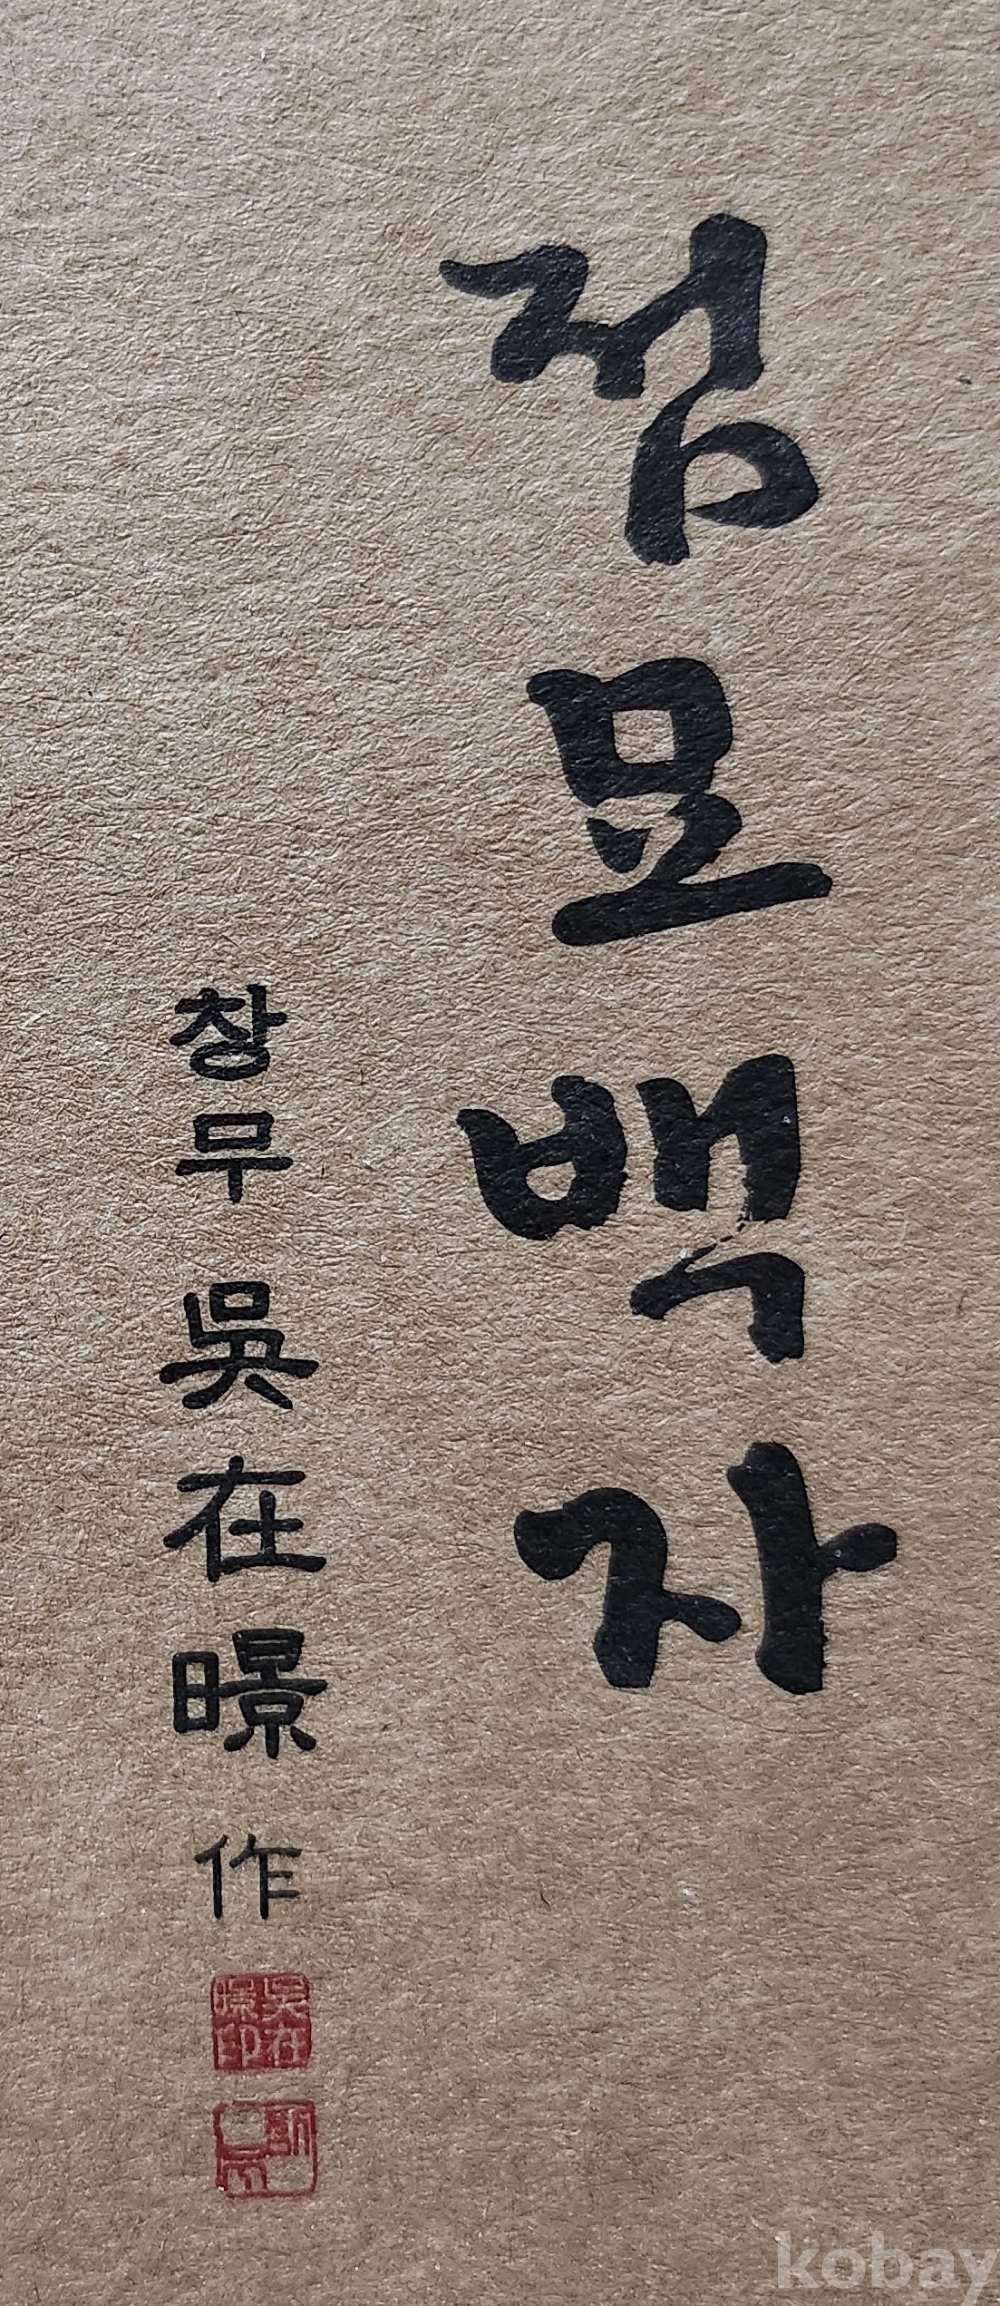 점묘백자
창무 吳在暻 作
吳在暻印
kobay